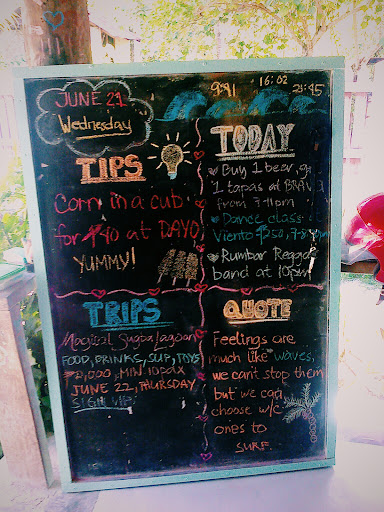 JUNE 21
Wednesday
9:41
16:02
21:45
TIPS
Corn in a cub
for ₱40 at DAYO
YUMMY!
TODAY
Buy 1 beer,
1 tapas at
from 7-11pm
Dance class at
Viento ₱250, 7-8
Rumbar Reggae
band at 10pm
TRIPS
Magical Sugba Lagoon
FOOD, DRINKS, SUP, TOYS
₱2,000, MIN 10PAX
JUNE 22, THURSDAY
SIGN UP
QUOTE
Feelings are
much like waves,
we can't stop them
but we can
choose w/c
ones to
SURF.